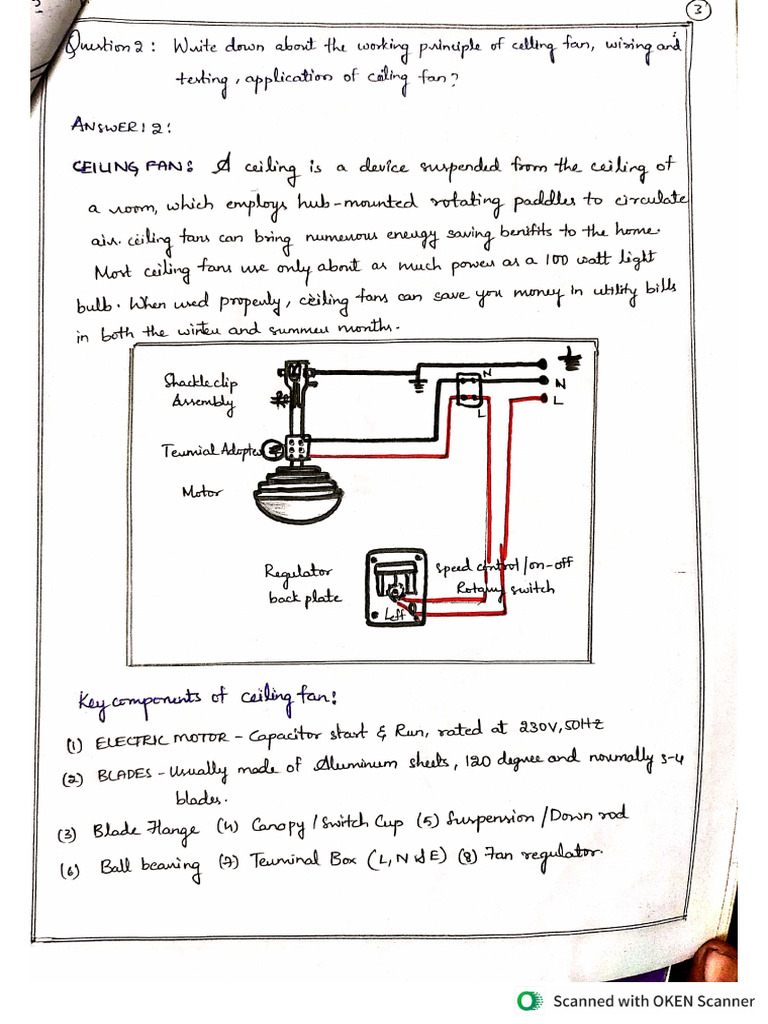 3
Question 2 : Write down about the working principle of celling fan, wiring and
testing, application of ceiling fan?
ANSWER! 2:
CEILING FAN: A ceiling is a device suspended from the ceiling of
a room, which employs hub-mounted rotating paddles to circulate
air. ceiling fans can bring numerous energy saving benifits to the home.
Most ceiling fans use only about as much power as a 100 watt light
bulb. When used properly, ceiling fans can save you money in utility bills
in both the winter and summer months.
Shackle clip
Assembly
N
N
L
L
Terminal Adopter
Motor
Regulator
back plate
Speed control/on-off
Rotary switch
Left
Key components of ceiling fan:
(1) ELECTRIC MOTOR - Capacitor start & Run, rated at 230V, 50HZ
(2) BLADES - Usually made of Aluminum sheets, 120 degree and normally 3-4
blades.
(3) Blade Flange (4) Canopy / Switch Cup (5) Suspension / Down rod
(6) Ball bearing (7) Terminal Box (L, N & E) (8) Fan regulator.
Scanned with OKEN Scanner